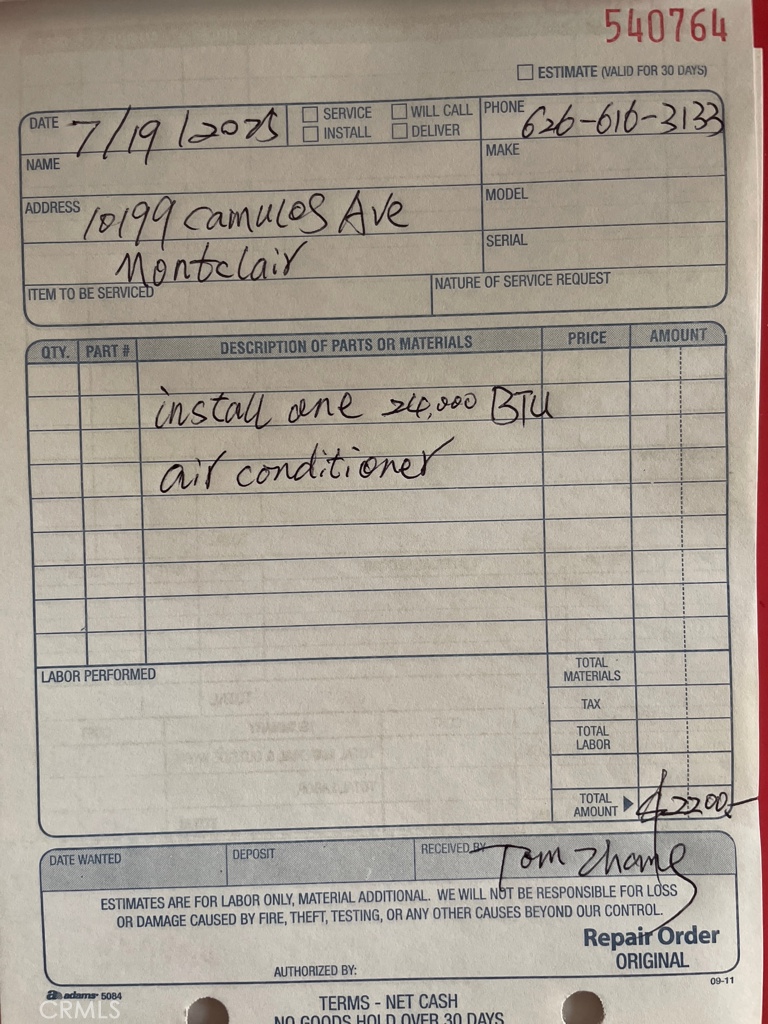 540764
ESTIMATE (VALID FOR 30 DAYS)
DATE 7/19/2025 SERVICE WILL CALL PHONE 626-616-3133
INSTALL DELIVER
NAME MAKE
ADDRESS 10199 Camulos Ave MODEL
Montclair SERIAL
ITEM TO BE SERVICED NATURE OF SERVICE REQUEST
QTY. PART # DESCRIPTION OF PARTS OR MATERIALS PRICE AMOUNT
install one 24,000 BTU
air conditioner
LABOR PERFORMED TOTAL MATERIALS
TAX
TOTAL LABOR
TOTAL AMOUNT $2200.-
DATE WANTED DEPOSIT RECEIVED BY Tom Zhang
ESTIMATES ARE FOR LABOR ONLY, MATERIAL ADDITIONAL. WE WILL NOT BE RESPONSIBLE FOR LOSS
OR DAMAGE CAUSED BY FIRE, THEFT, TESTING, OR ANY OTHER CAUSES BEYOND OUR CONTROL.
Repair Order
ORIGINAL
AUTHORIZED BY:
09-11
adams 5084
CRMLS
TERMS - NET CASH
NO GOODS HOLD OVER 30 DAYS